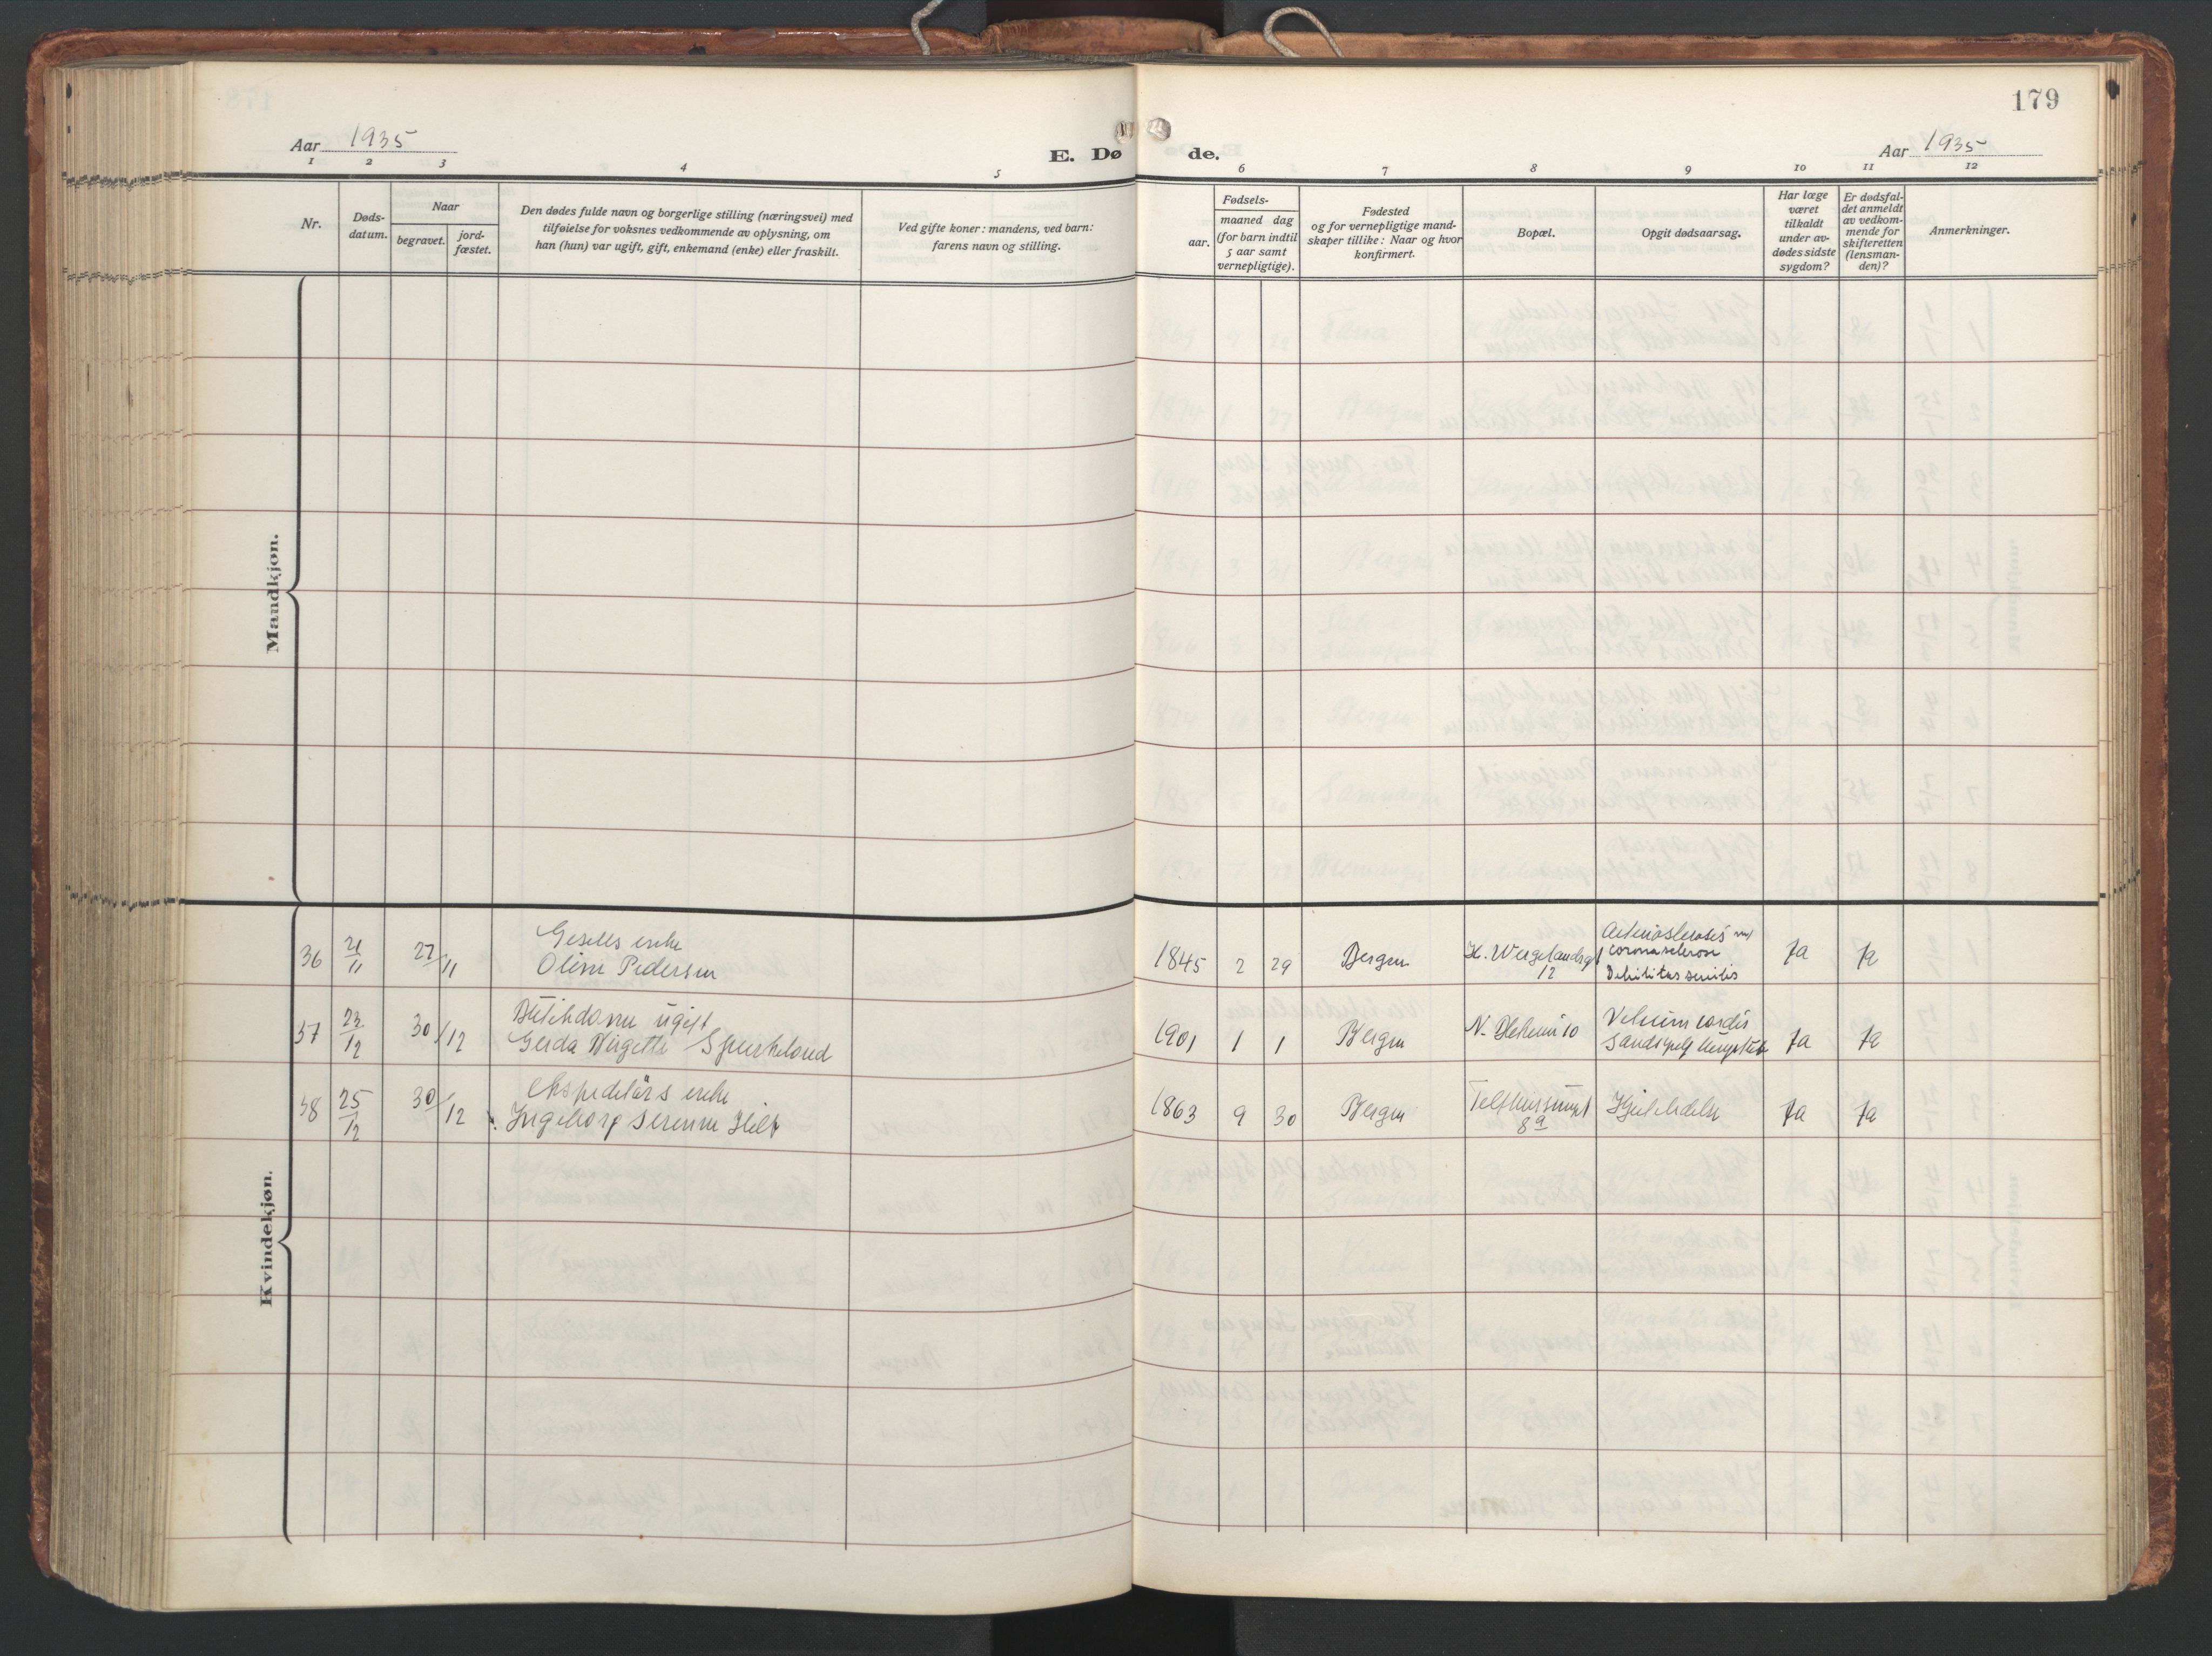 179
Aar 1935
E. Dø de.
Aar 1935
1 2 3 4 5 6 7 8 9 10 11 12
Nr.
Døds-
datum.
Naar
begravet.
jord-
fæstet.
Den dødes fulde navn og borgerlige stilling (næringsvei) med
tilføielse for voksnes vedkommende av oplysning, om
han (hun) var ugift, gift, enkemand (enke) eller fraskilt.
Ved gifte koner: mandens, ved barn:
farens navn og stilling.
Fødsels-
aar.
maaned dag
(for barn indtil
5 aar samt
vernepligtige).
Fødested
og for vernepligtige mand-
skaper tillike: Naar og hvor
konfirmert.
Bopæl.
Opgit dødsaarsag.
Har læge
været
tilkaldt
under av-
dødes sidste
sygdom?
Er dødsfal-
det anmeldt
av vedkom-
mende for
skifteretten
(lensman-
den)?
Anmerkninger.
Mandkjøn.
Kvindekjøn.
36 21/11 27/11 Gesells enke
Oline Pedersen
1845 2 29 Bergen H. Wergelandsgt
12
coronasclerose
Debilitas senilis
Ja Ja
37 23/12 30/12 Butikdame ugift
Gerda Birgitte Spurkeland
1901 1 1 Bergen 10
Vitium cordis
Ja Ja
38 25/12 30/12 Ekspeditørs enke
Ingeborg Serenne Hilt
1863 9 30 Bergen
8a
Ja Ja